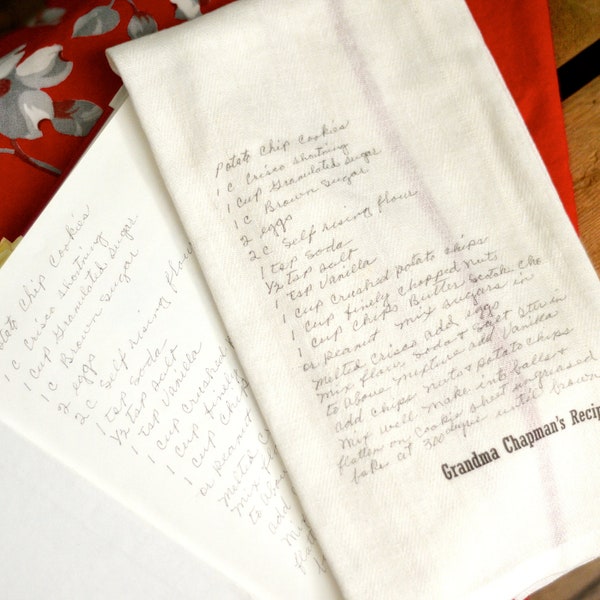 Potato Chip Cookies
1 C Crisco shortning
1 Cup Granulated Sugar
1 C Brown Sugar
2 eggs
2 C. Self rising flour
1 tsp Soda
1/2 tsp salt
1 tsp Vanilla
1 cup crushed potato chips
1 cup finely chopped nuts
1 cup chips Butter Scotch, Cho
or Peanut Mix sugars in
melted Crisco add eggs
mix flour, Soda & Salt Stir in
to above mixture add Vanilla
add chips nuts & Potato chips
Mix well make into balls &
flatten on Cookie sheet ungreased
bake at 300 until brown
Grandma Chapman's Recip
Potato Chip Cookies
1 C Crisco shortning
1 Cup Granulated Sugar
1 C Brown Sugar
2 eggs
2 C Self rising flour
1 tsp Soda
1/2 tsp salt
1 tsp Vanilla
1 cup crushed
1 cup finel
1 cup chips
or Peanut
melted C
mix fl
to abov
add
Mi
fl